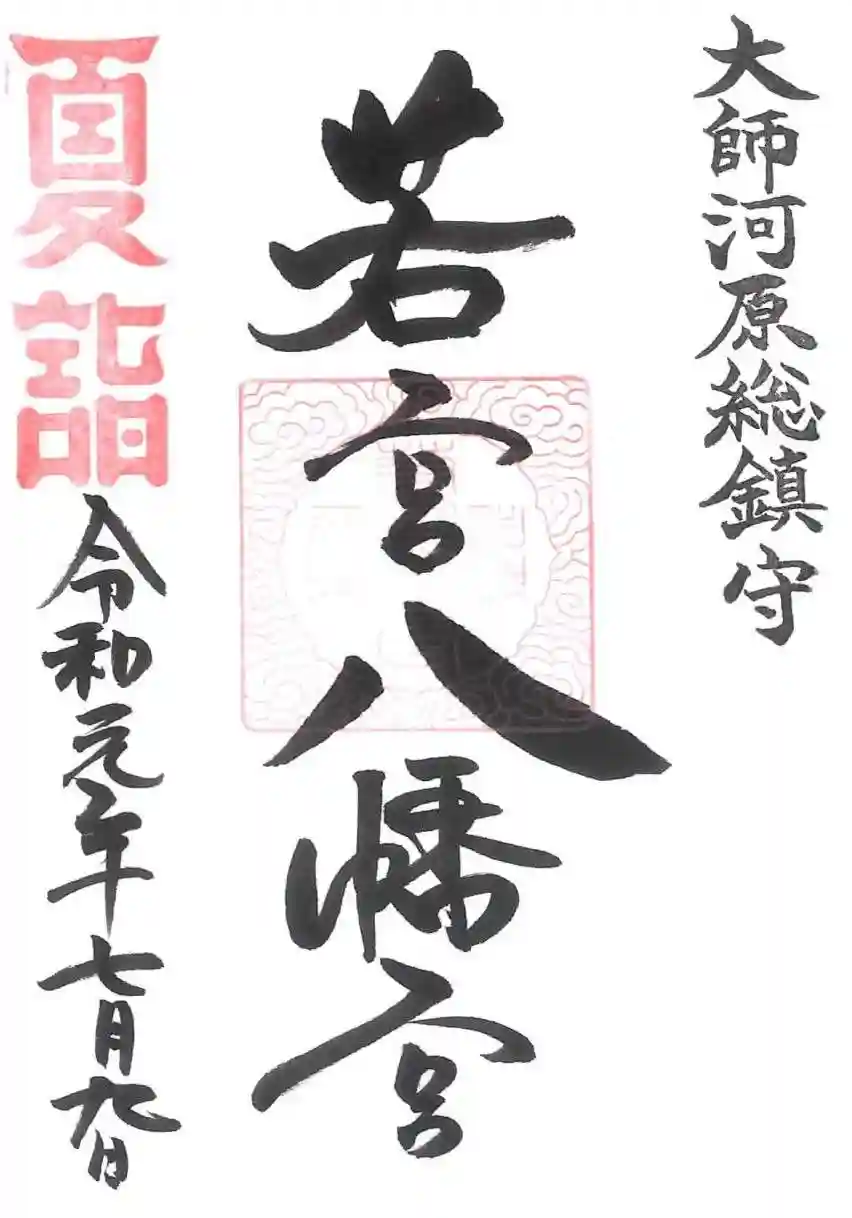 大師河原総鎮守
若宮八幡宮
夏詣
令和元年七月九日